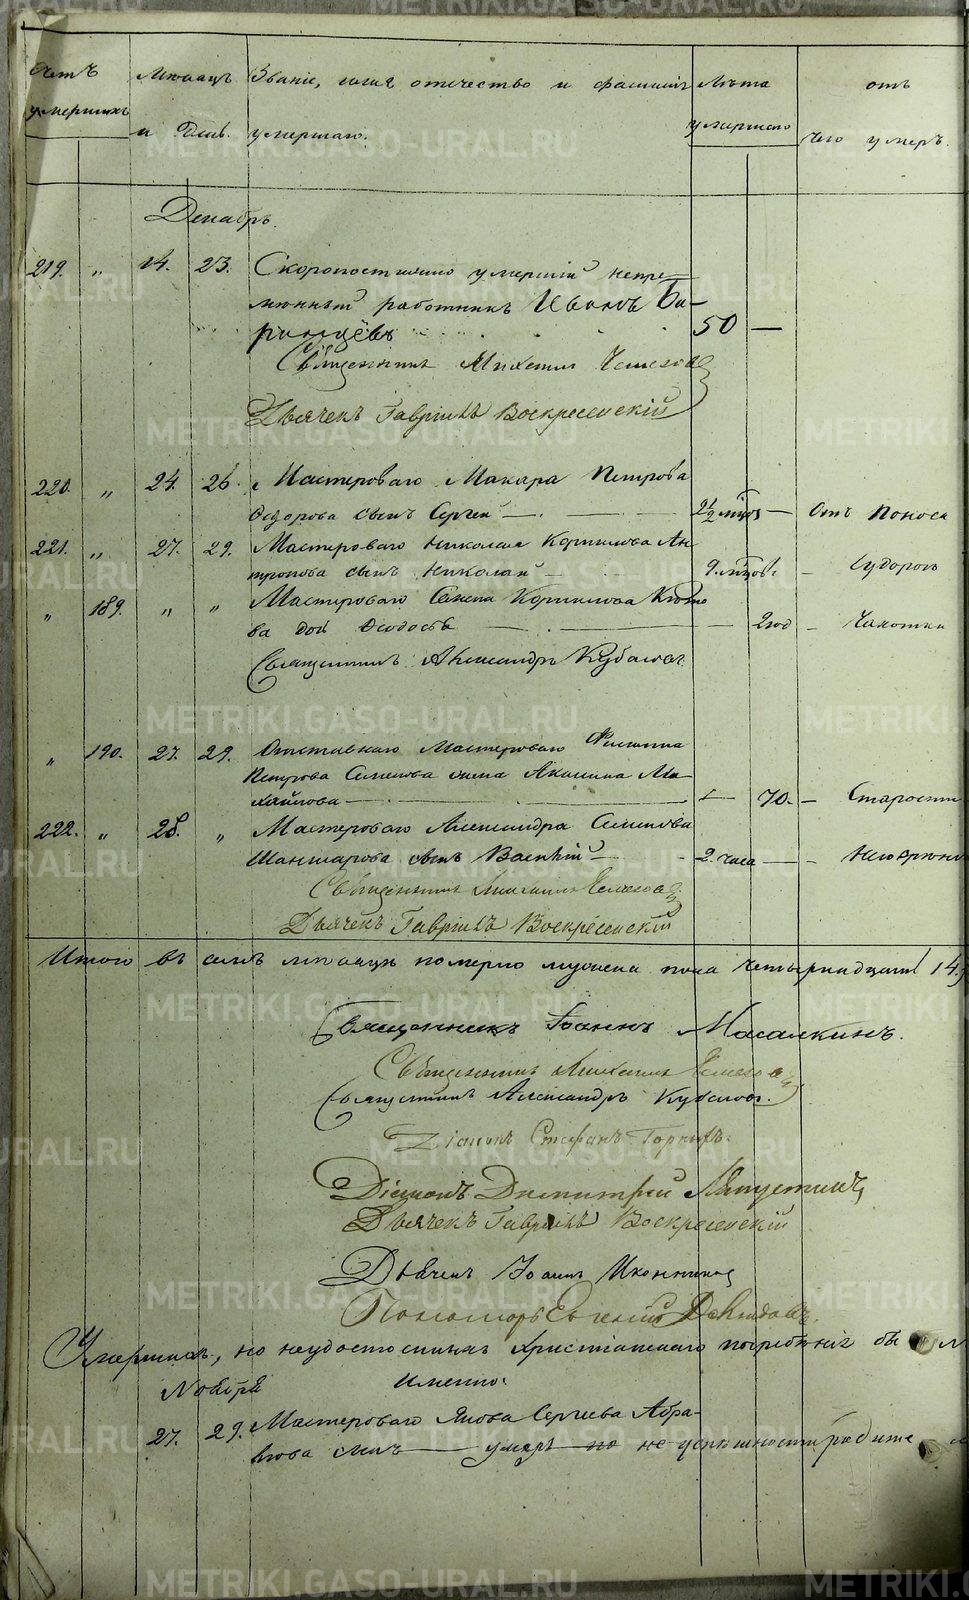 Счетъ умершихъ
Мѣсяцъ и День.
Званіе, имя отчество и фамилія умершаго.
Лѣта умершаго
отъ чего умеръ.
Декабрь.
219. „ 14. 23. Скоропостижно умершій непре-
мѣнный работникъ Иванъ Ба-
ранцевъ 50 —
Священникъ Михаилъ
Дьячекъ Гавріилъ Воскресенскій
220. „ 24. 26. Мастероваго Макара Петрова
Ѳедорова сынъ Сергей — 2½ мѣся — Отъ Поноса
221. „ 27. 29. Мастероваго Николая Корнилова Ан-
тропова сынъ Николай — 9. мѣсов. — Судорогъ
„ 189. „ „ Мастероваго Корнилова
ва дочь Ѳеодосья — — 2 год — Чахотки
Священникъ Александръ Кубасовъ
„ 190. 27. 29. Отставнаго Мастероваго Филиппа
Петрова Семенова жена Акилина Ми-
хайлова — — 70. — Старости
222. „ 28. „ Мастероваго Александра Семенова
Шаншарова сынъ Василій — 2. часа — —
Священникъ Михаилъ
Дьячекъ Гавріилъ Воскресенскій
Итого въ семъ мѣсяцѣ померло мужска пола четырнадцать 14,
Священникъ Іоаннъ Масалкинъ.
Священникъ Михаилъ
Священникъ Александръ Кубасовъ.
Діаконъ Стефанъ
Діаконъ Димитрій
Дьячекъ Гавріилъ Воскресенскій
Дьячекъ Іоаннъ Иконниковъ
Пономарь Евгеній
Умершихъ, но неудостоенныхъ Христіанскаго погребенія бы
Ноября именно:
27. 29. Мастероваго Якова Сергеева Абра-
мова сынъ — умеръ не
METRIKI.GASO-URAL.RU